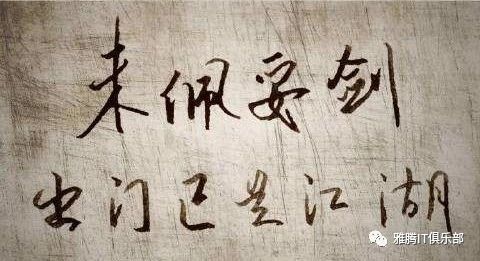 来佩妥剑
出门已是江湖
雅腾IT俱乐部